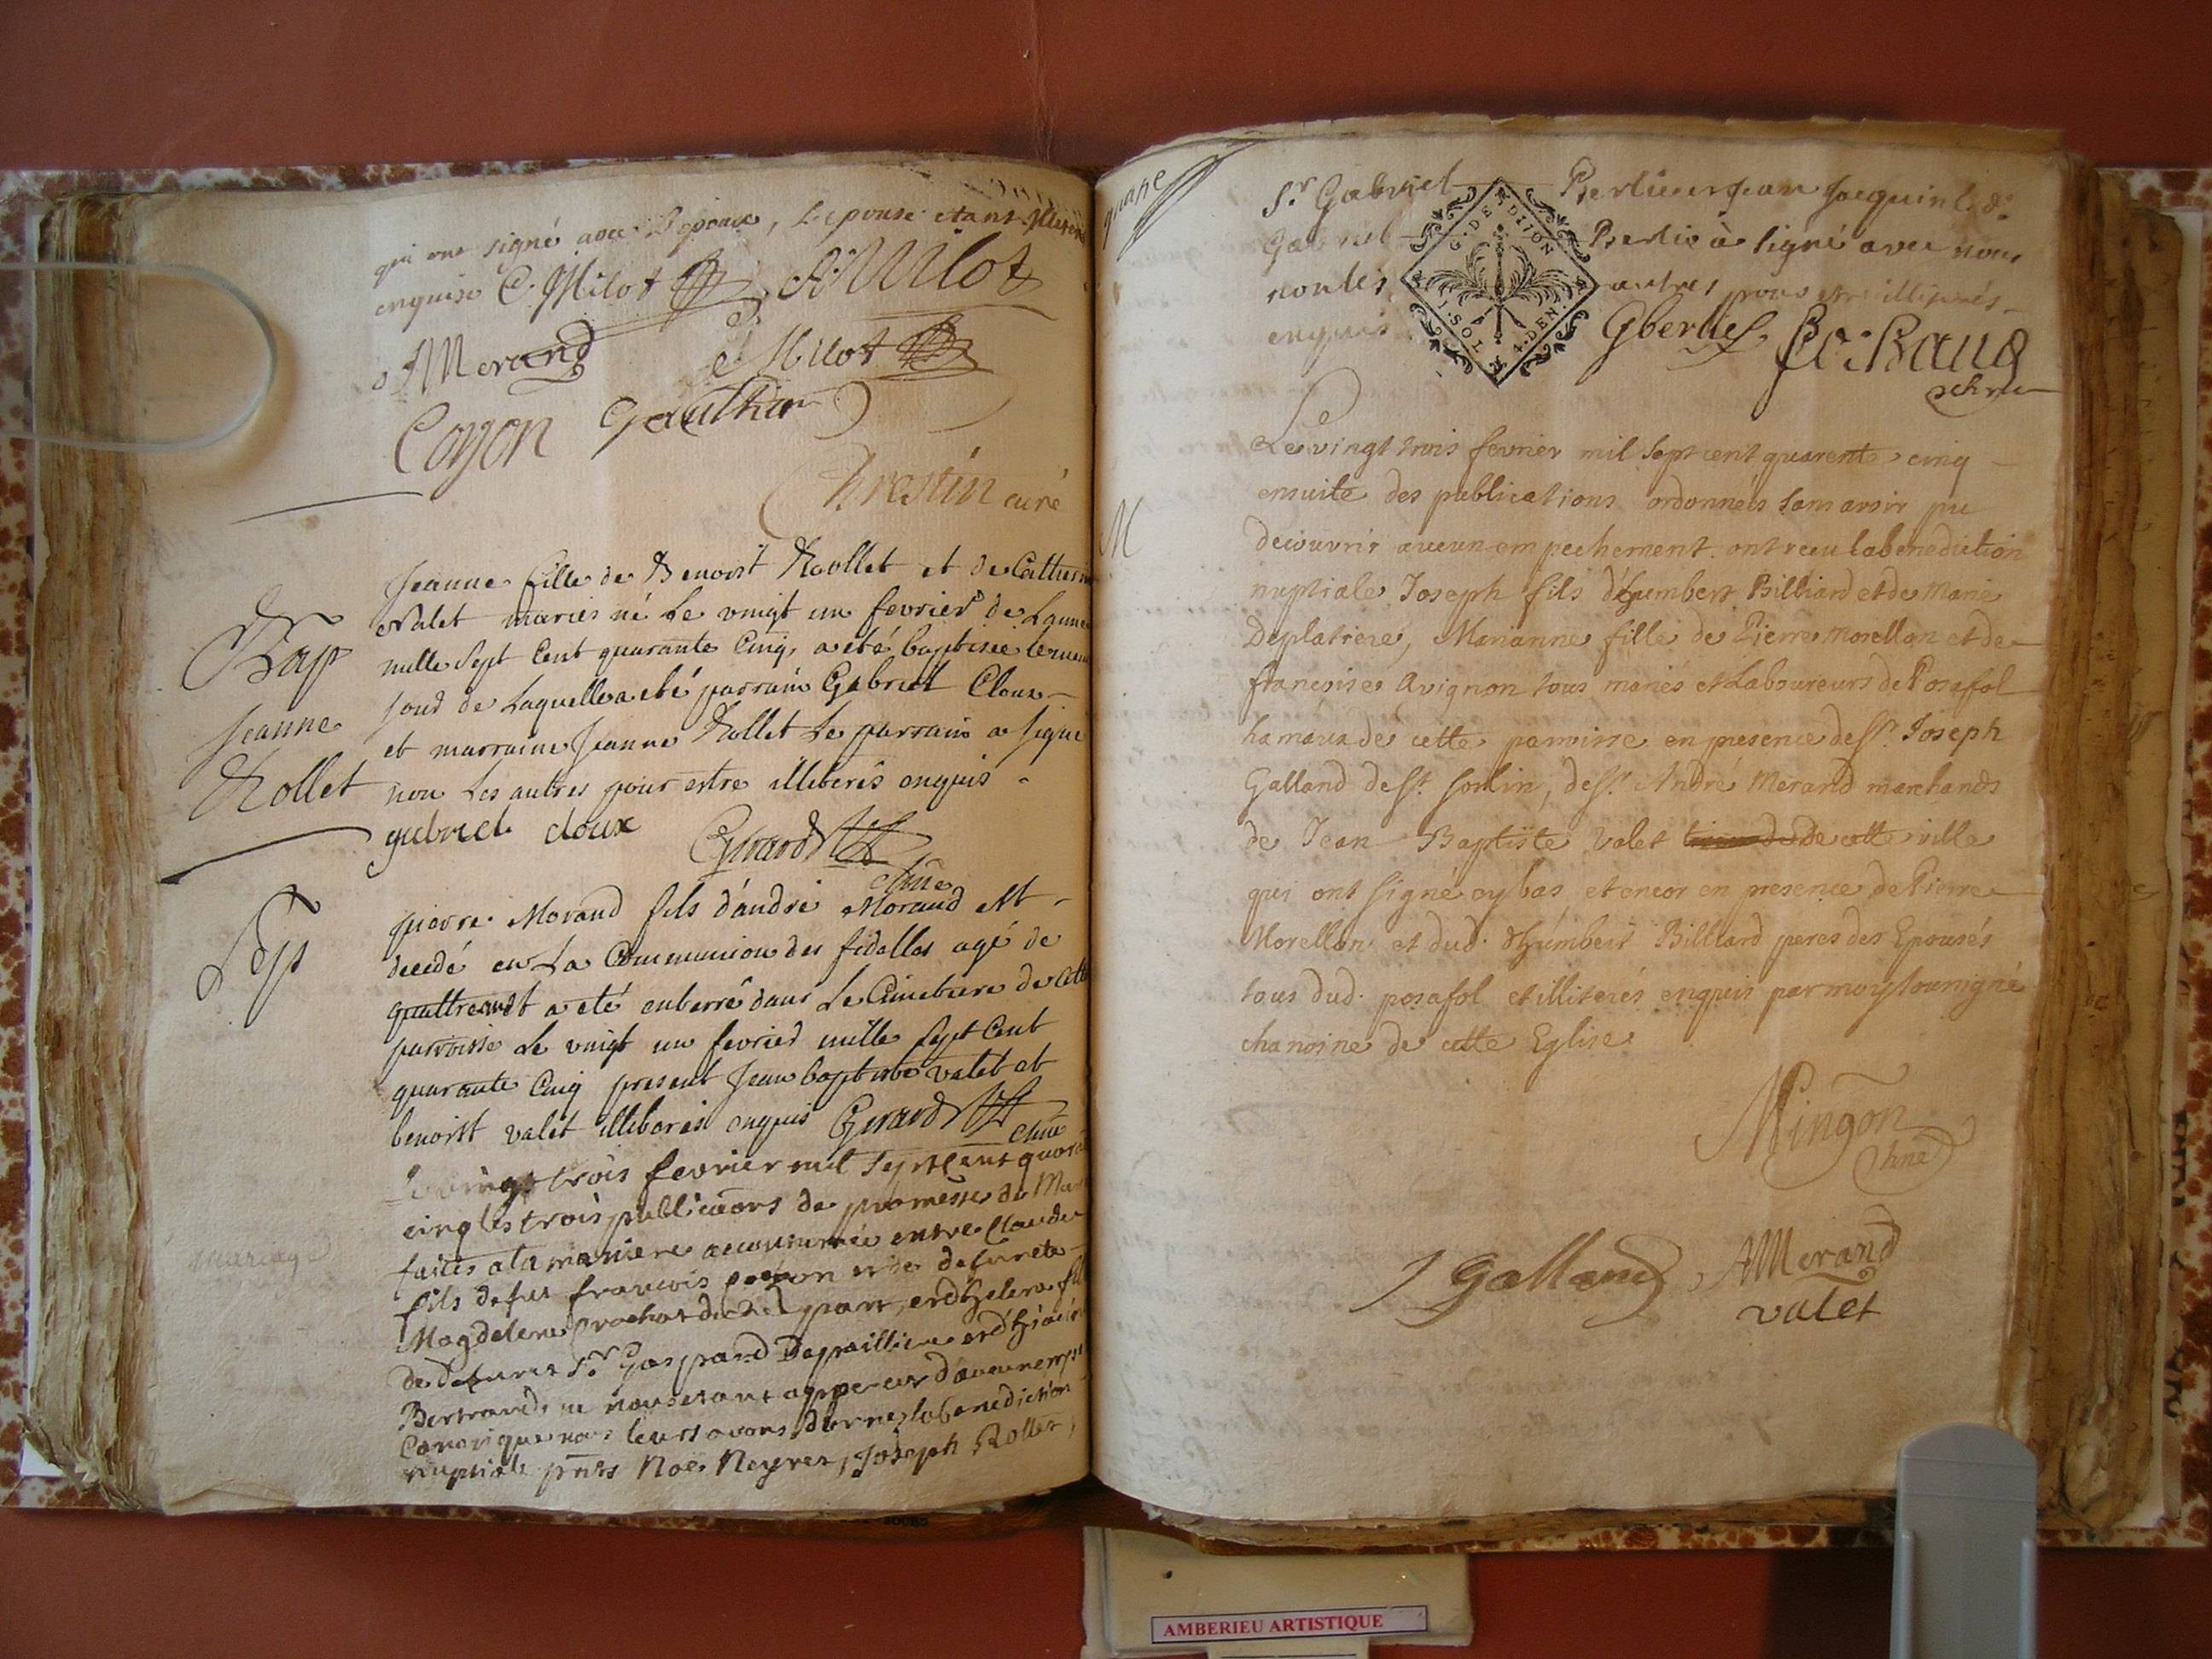 qui ont signé avec l'epoux, L'epouse etant
enquise C. Milot A. Milot
AMerand C Milot
Coyon Gauthier
Brestin curé
Bap
Jeanne
Rollet
Jeanne fille de Benoist Roollet et de Catherin
Valet mariés né Le vingt un fevrier de Lanne
mille Sept Cent quarante Cinq, a eté baptisée le
jour de Laquelle a eté parrain Gabriel Cloux
et marraine Jeanne Rollet Le parrain a signé
non Les autres pour estre illiterés enquis
gabriel cloux Girard
chne
Sep
pierre Morand fils d'andré Morand est
decedé en La Communion des fidelles agé de
quattre a eté enterré dans Le Cimetiere de Cette
parroisse Le vingt un fevrier mille Sept Cent
quarante Cinq present Jean baptiste valet et
benoist valet illiterés enquis Girard
chne
mariage
Le vingt trois fevrier mil Sept Cent quara
cinq les trois publicaons de promesse de Mar
faites a la maniere accoutumée entre Claude
fils de feu francois et de defunete
Magdelene Prochot d'une part, et d'helene fil
de defunct Sr Gaspard Depaillier et d'hiacin
Bertrand, ne nous etant apperceu d'aucun emp
Canonique nous leurs avons donnez la benediction
nuptiale pnts Noë Neyret, Joseph Rollet,
quane
Sr Gabriel Berlie et Jean Jacquin led.
Gabriel Berlie à signé avec nous
non les autres pour etre illiterés
enquis Gberlie
G. DE DIION
1. SOL 4. DEN.
M
Le vingt trois fevrier mil Sept cent quarente cinq
ensuite des publications ordonnés sans avoir pu
decouvrir aucun empechement ont receu la benediction
nuptiale Joseph fils d'humbert Billiard et de Marie
Deplatiere, Marianne fille de Pierre Morellon et de
francoise Avignon tous mariés et Laboureurs de Posafol
hamaux de cette parroisse en presence de Sr. Joseph
Galland de St. Sorlin, de Sr. André Merand marchands
de Jean Baptiste Valet de cette ville
qui ont signé cy bas et encor en presence de Pierre
Morellon et dud. humbert Billiard peres des Epousés
tous dud. posafol et illiterés enquis par moy soussigné
chanoine de cette Eglise
Mingon
chne
J Galland, AMerand
valet
AMBERIEU ARTISTIQUE